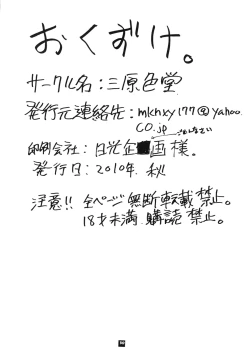 おくずけ。
サークル名：三原色堂
発行元連絡先：mlchxy177@yahoo.
co.jp
印刷会社：日光企画様。
発行日：2010年.秋
注意!! 全ページ無断転載禁止。
18才未満.購読禁止。